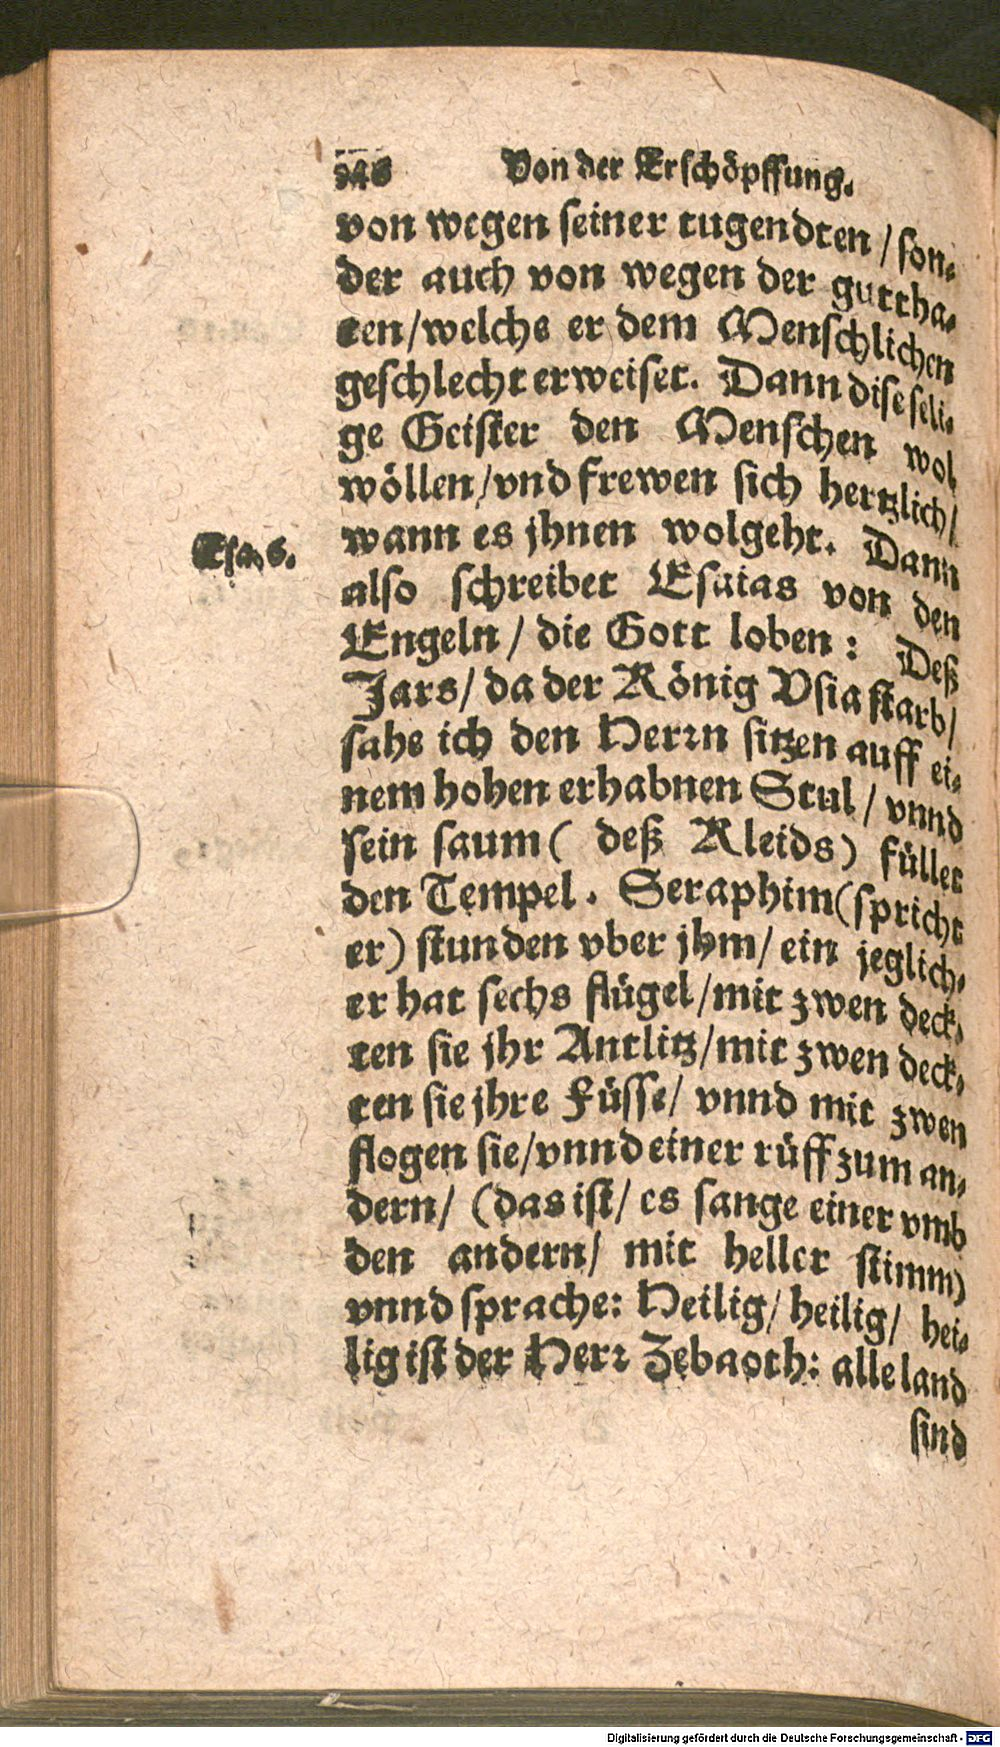 246 Von der Erschöpffung.
von wegen seiner tugendten / son-
der auch von wegen der guttha-
ten/welche er dem Menschlichen
geschlecht erweiset. Dann dise seli-
ge Geister den Menschen wol
wöllen/vnd frewen sich hertzlich/
wann es jhnen wolgeht. Dann
Esa. 6.
also schreibet Esaias von den
Engeln / die Gott loben : Deß
Jars/ da der König Vsia starb/
sahe ich den Herrn sitzen auff ei-
nem hohen erhabnen Stul / vnnd
sein saum ( deß Kleids) füllet
den Tempel. Seraphim(spricht
er) stunden vber jhm/ ein jeglich-
er hat sechs flügel/mit zwen deck-
ten sie jhr Antlitz/mit zwen deck-
ten sie jhre Füsse/ vnnd mit zwen
flogen sie/vnnd einer rüff zum an-
dern/ (das ist/ es sange einer vmb
den andern/ mit heller stimm)
vnnd sprache: Heilig/ heilig/ hei-
lig ist der Herr Zebaoth: alle land
sind
Digitalisierung gefördert durch die Deutsche Forschungsgemeinschaft - DFG